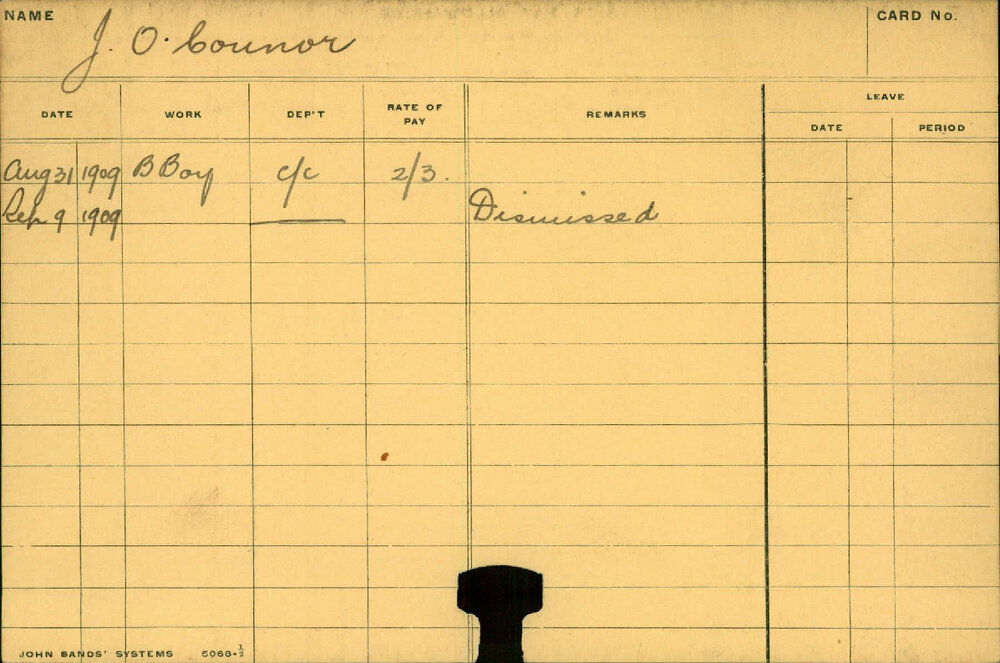 NAME J. O'Connor CARD No.
DATE WORK DEP'T RATE OF PAY REMARKS LEAVE
DATE PERIOD
Aug 31 1909 B Boy c/c 2/3.
Sep 9 1909 Dismissed
JOHN SANDS' SYSTEMS 5068-½